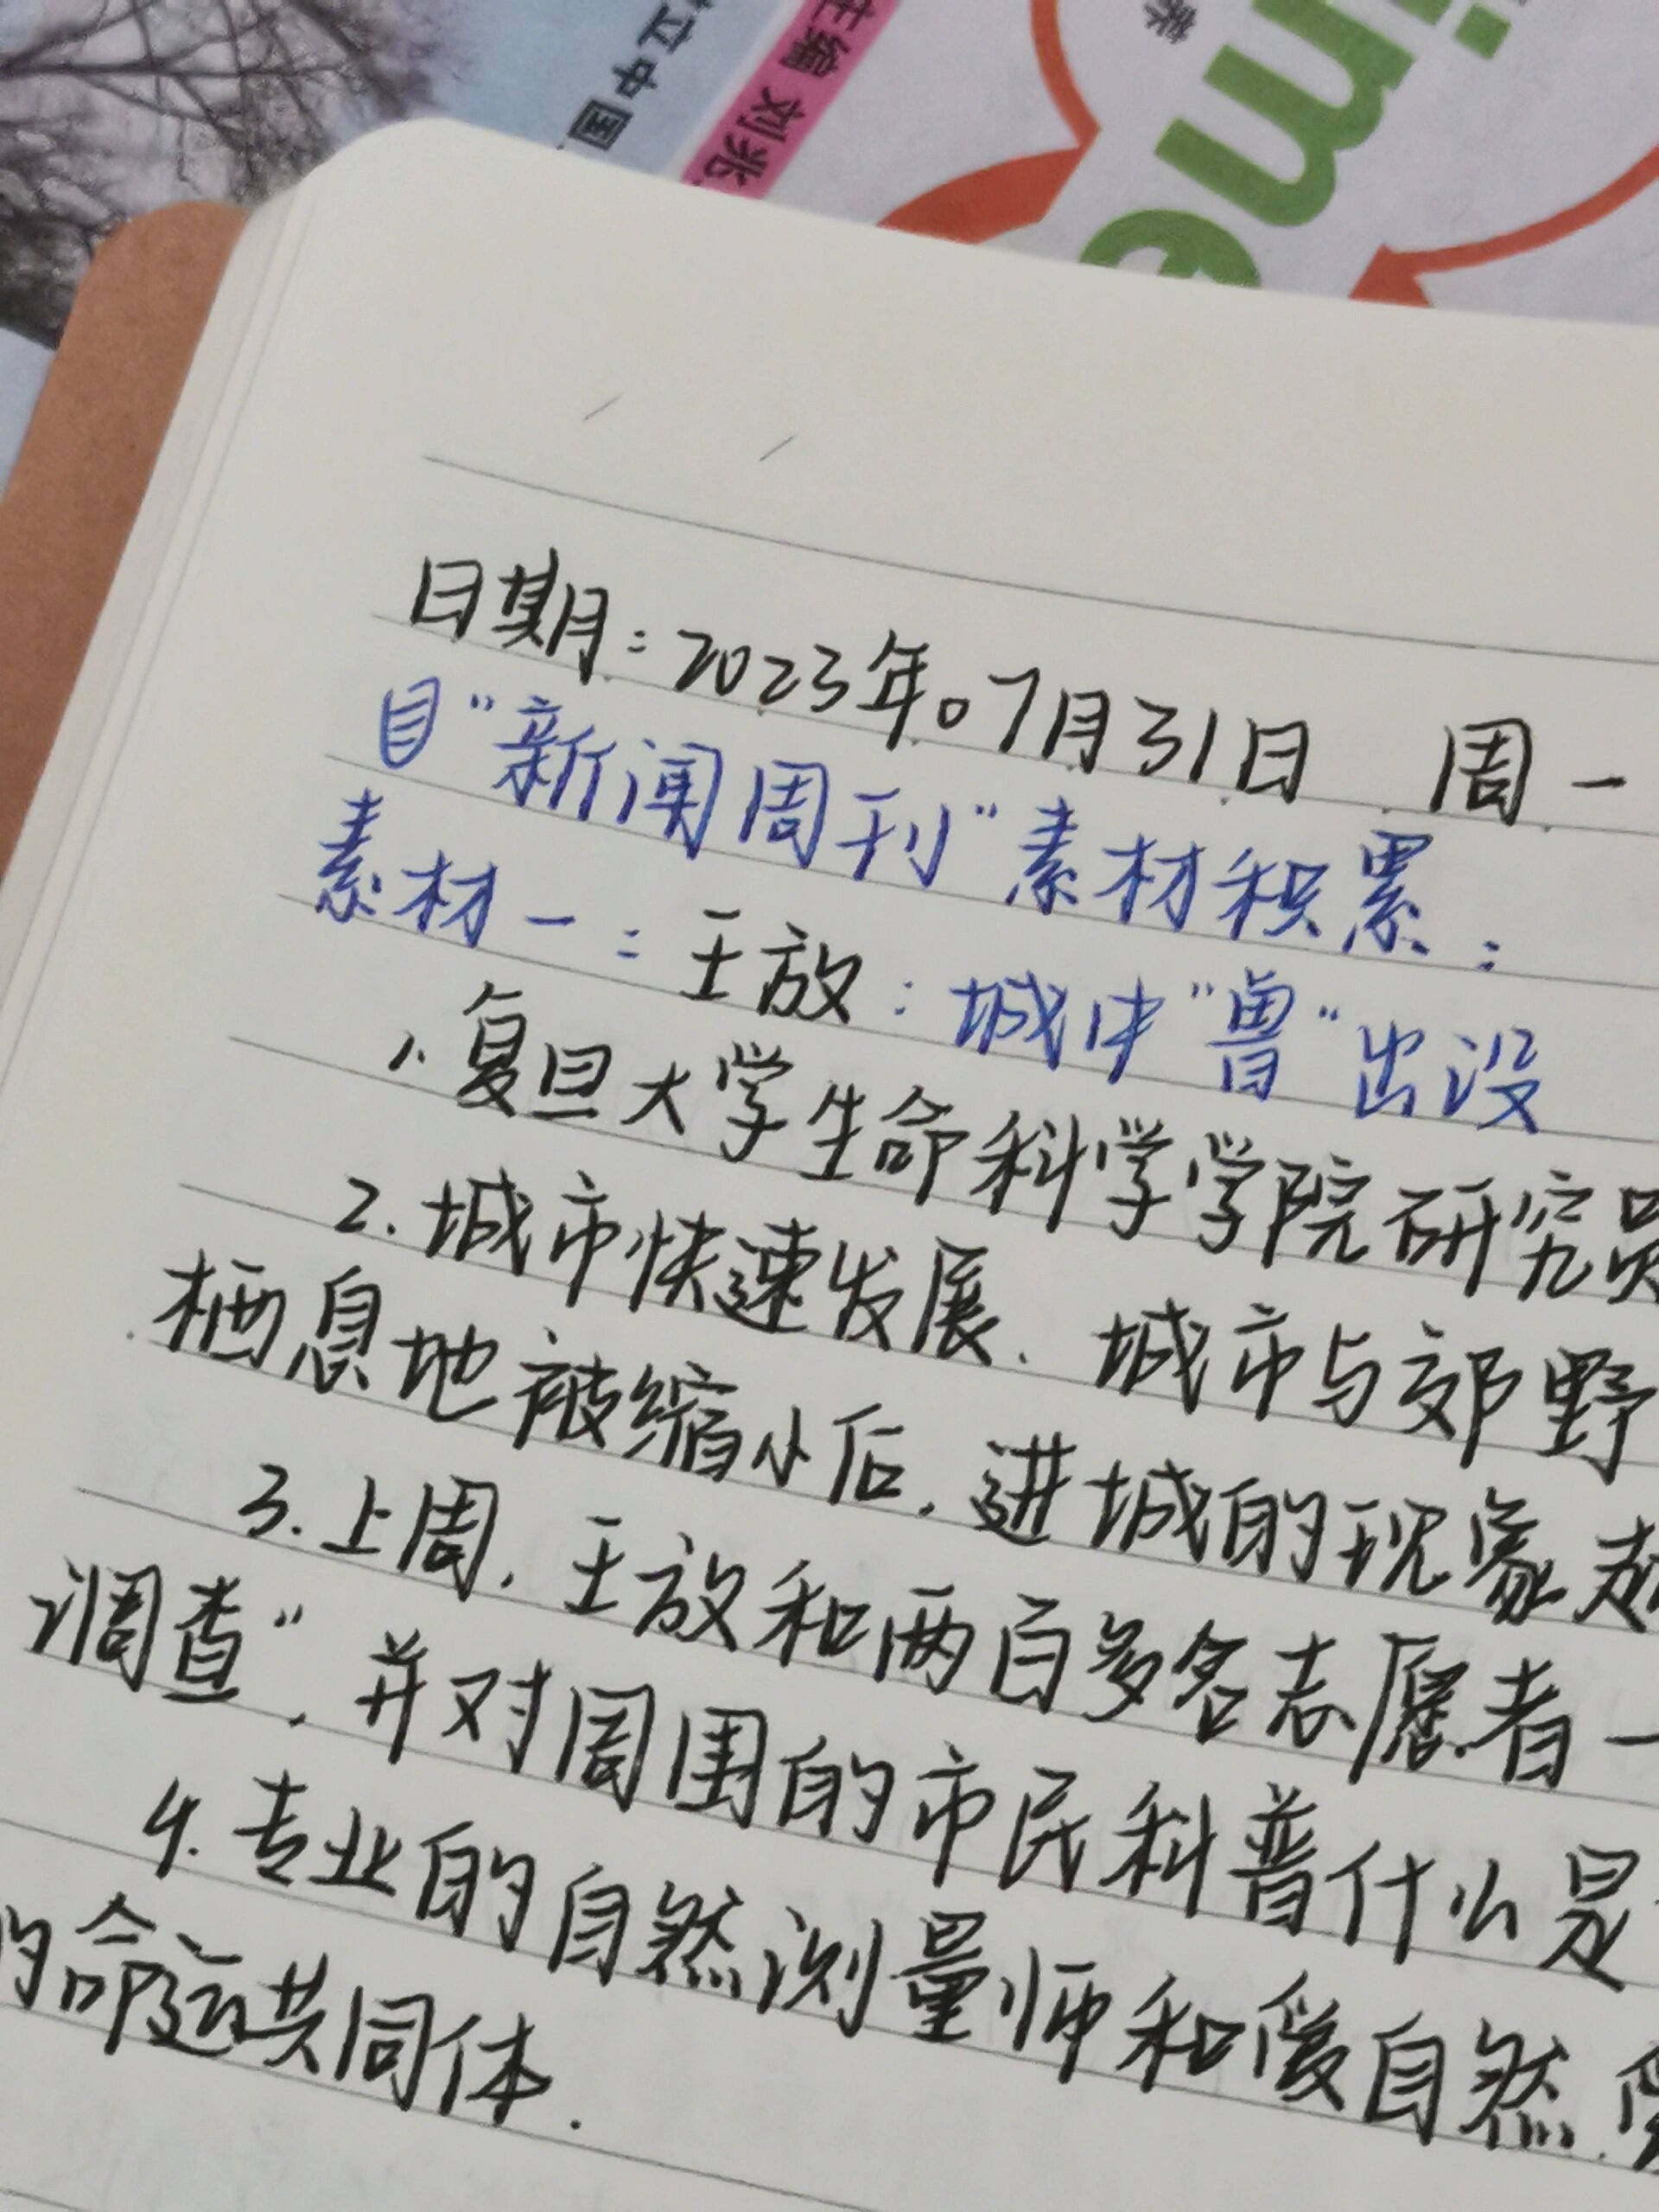 立中国
主编 刘兆
ime
日期：2023年07月31日 周一
目“新闻周刊”素材积累：
素材一：王放：城中“兽”出没
1.复旦大学生命科学学院研究员
2.城市快速发展，城市与郊野
栖息地被缩小后，进城的现象越
3.上周，王放和两百多名志愿者一
调查”，并对周围的市民科普什么是
4.专业的自然测量师和爱自然，
的命运共同体.